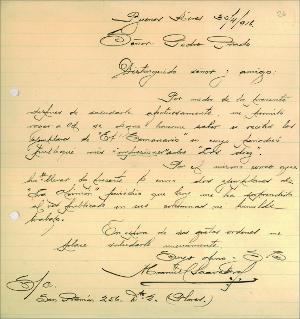 Buenos Aires 30/4/912
Señor Pedro Prado
Distinguido señor y amigo:
Por medio de la presente
despues de saludarle afectuosamente, me permito
rogar a Ud. se digne hacerme saber si recibió los
ejemplares de "El Semanario" en cuyo periodico
publiqué mis
Por el mismo correo que
ha llevar la presente, le envio dos ejemplares de
"La Opinión" periodico que hoy me ha sorprendido
al ver publicado en sus columnas mi humilde
trabajo.
En espera de sus gratas ordenes me
place saludarle nuevamente.
Manuel
S/C
San Román 256